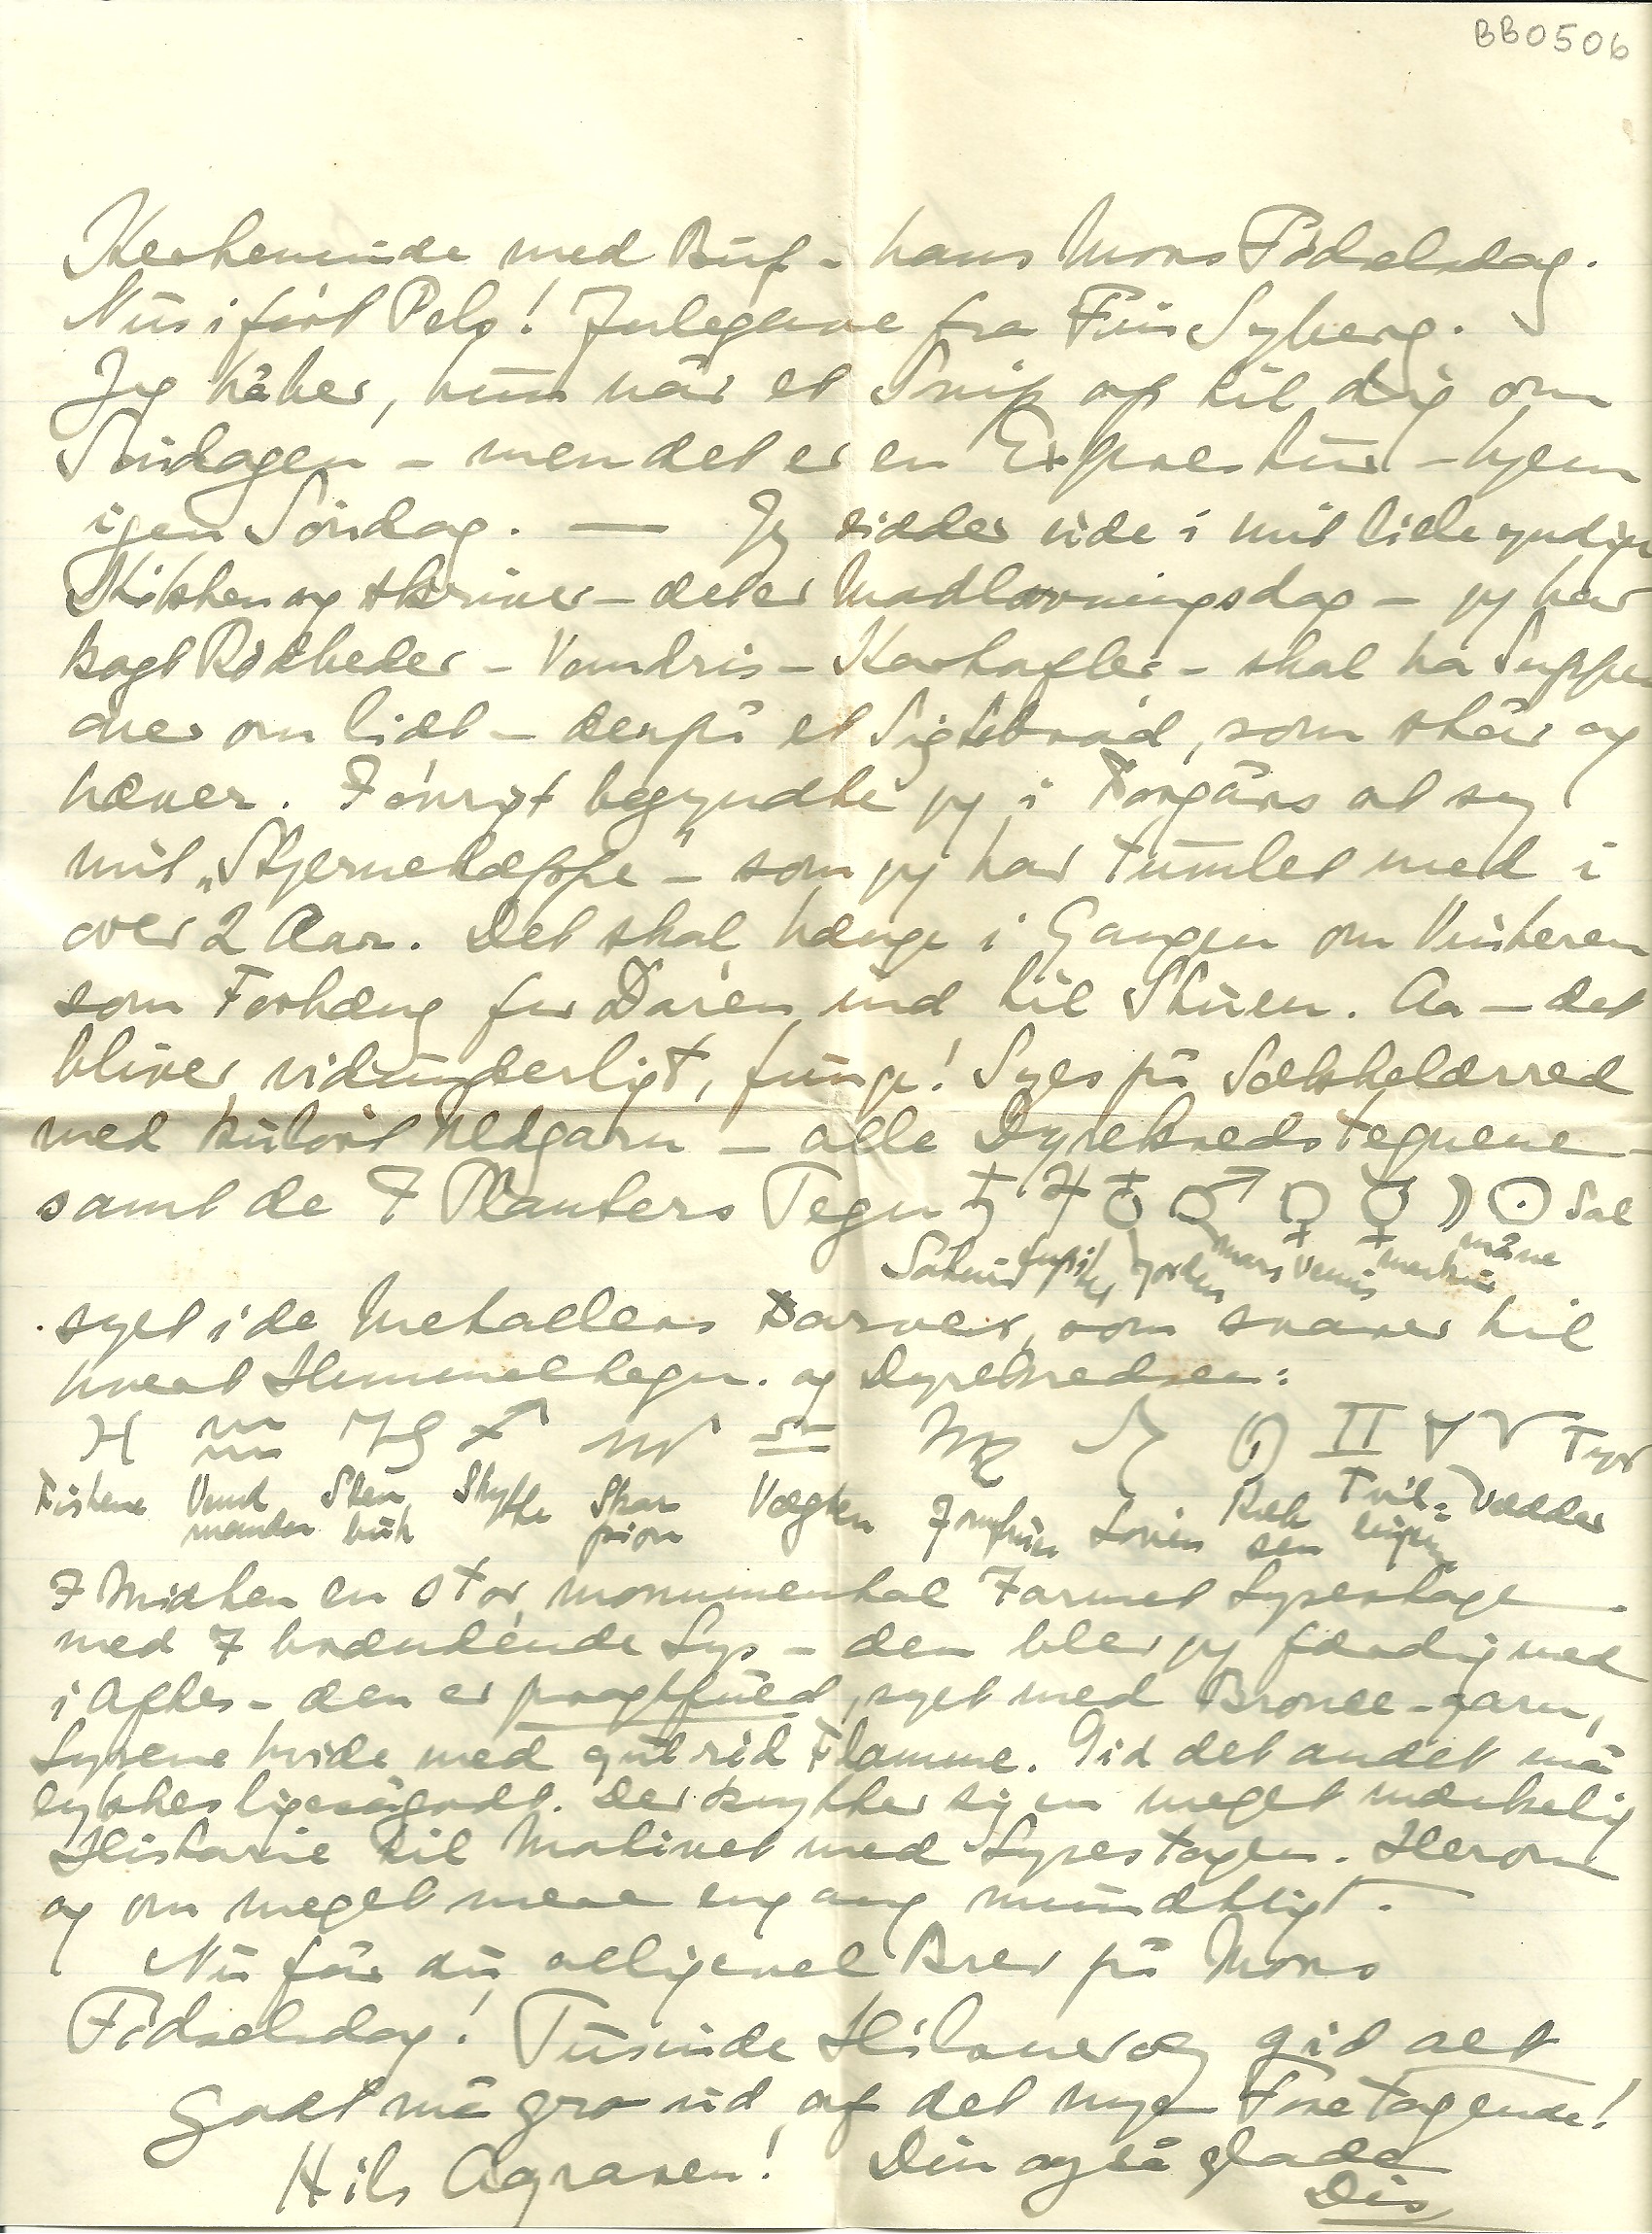 BB0506
Kerteminde med Buf - hans Mors Fødselsdag.
Nus iført Pels! Julegave fra Fru Syberg.
Jeg håber, hun når et Smip op til dig om
Søndagen - men det er en Exprestur - hjem
igen Søndag. — Jeg sidder ude i mit lille yndige
Køkken og skriver - det er Madlavningsdag - jeg har
kogt Rødbeder - Vandris - Kartofler - skal ha Suppe
over om lidt - derpå et Sigtebrød, som står og
hæver. Forøvrigt begyndte jeg i Forgårs at sy
mit „Stjernetæppe" - som jeg har tumlet med i
over 2 Aar. Det skal hænge i Gangen om Vinteren
som Forhæng for Døren ind til Stuen. Aa - det
bliver vidunderligt, ! Syes på Sækkelærred
med kulørt Uldgarn - alle Dyrekredstegnene -
samt de 7 Planters Tegn ♄ ♃ ♁ ♂ ♀ ☿ ☽ ☉ Sol
Saturn Jupiter Jorden Mars Venus Merkur måne
syet i de Metallers Farver, som svarer til
hvert Himmeltegn. og Dyrekredsen:
♓ ♒ ♑ ♐ ♏ ♎ ♍ ♌ ♋ ♊ ♉ ♈ Tyr
Fiskene Vandmanden Stenbuk Skytte Skorpion Vægten Jomfruen Løven Krebsen Tvillingerne Vædder
I Midten en stor, monumental Formet Lysestage
med 7 brændende Lys - den blev jeg færdig med
i Aftes - den er pragtfuld, syet med Bronce-garn,
Lysene hvide med gulrød Flamme. Gid det andet må
lykkes ligeså godt. Der knytter sig en meget mærkelig
Historie til Motivet med Lysestagen. Herom
og om meget mere engang mundtligt.
Nu får du alligevel Brev på Mors
Fødselsdag! Tusinde Hilsner og gid alt
godt må gro ud af det nye Foretagende!
Hils Agraren! Din også glade
Dis